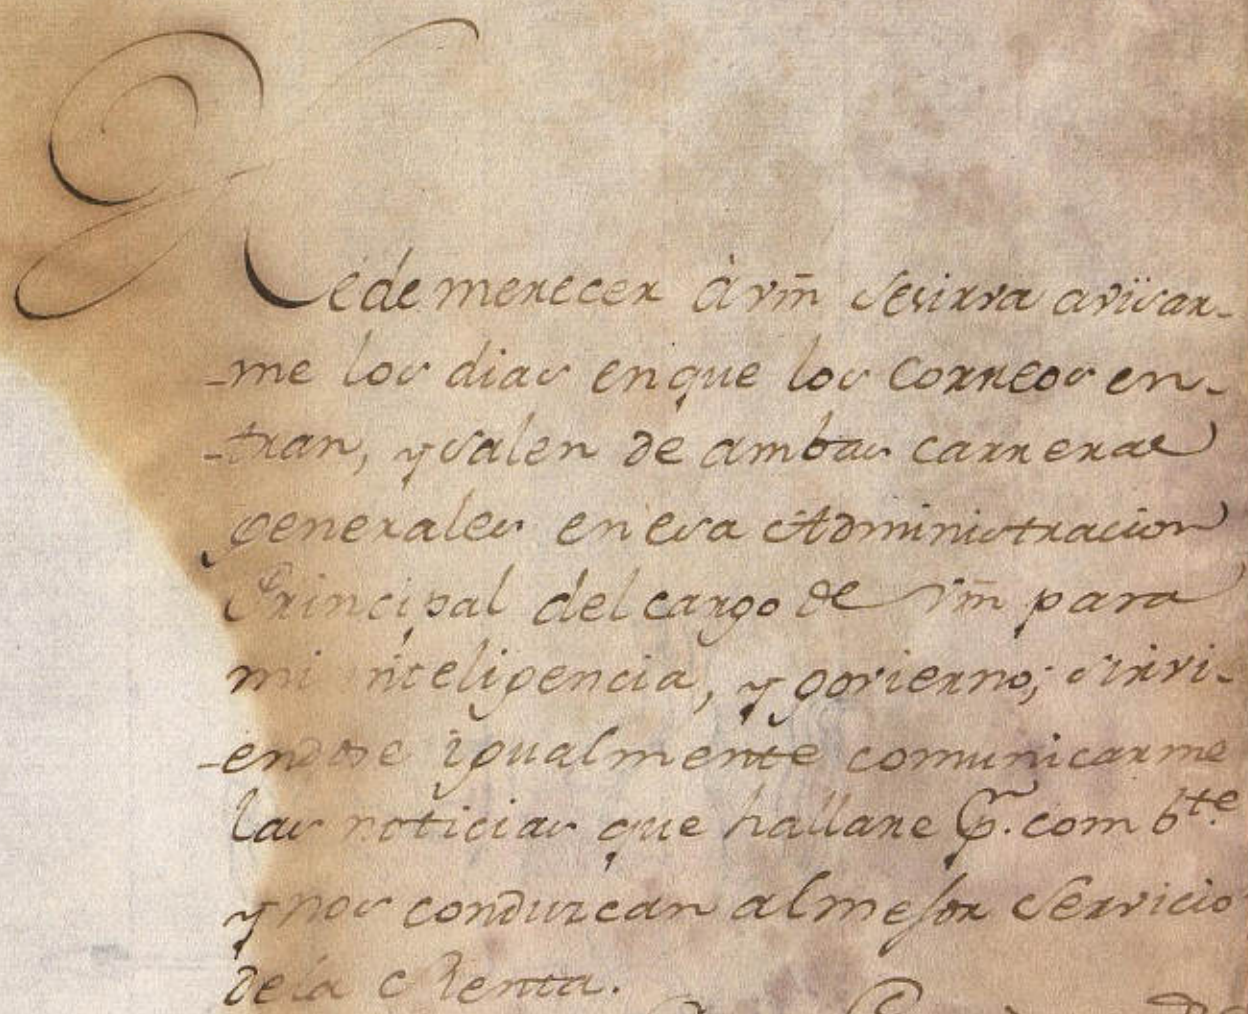 Hede merecer à vm̃ se sirva avisar-
-me los dias enque los Correos en-
-tran, y salen de ambas carreras
generales en esa Administracion
Principal del cargo de Vm̃ para
mi inteligencia, y govierno; sirvi-
-endose igualmente comunicarme
las noticias que hallare qͤ. com bte.
y nos conduzcan al mejor servicio
dela Renta.